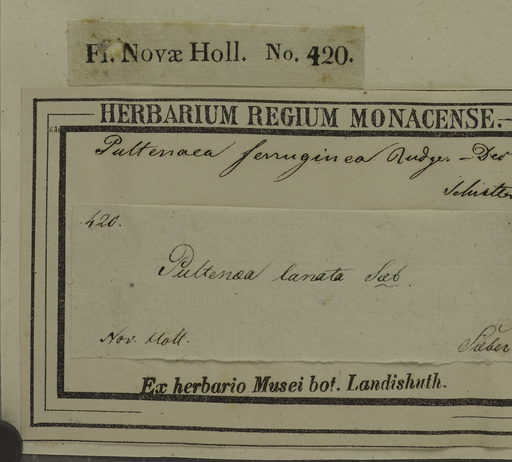 Fl. Novæ Holl. No. 420.
HERBARIUM REGIUM MONACENSE.
Pultenaea ferruginea Rudge. – Dec
420.
Pultenæa lanata Sieb.
Nov. Holl.
Sieber
Ex herbario Musei bot. Landishuth.